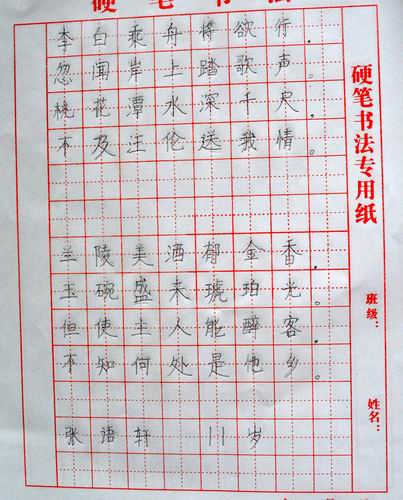 硬笔书法
李白乘舟将欲行.
忽闻岸上踏歌声。
桃花潭水深千尺.
不及汪伦送我情。
兰陵美酒郁金香.
玉碗盛来琥珀光。
但使主人能醉客.
不知何处是他乡。
张语轩 11岁
硬笔书法专用纸
班级:
姓名: